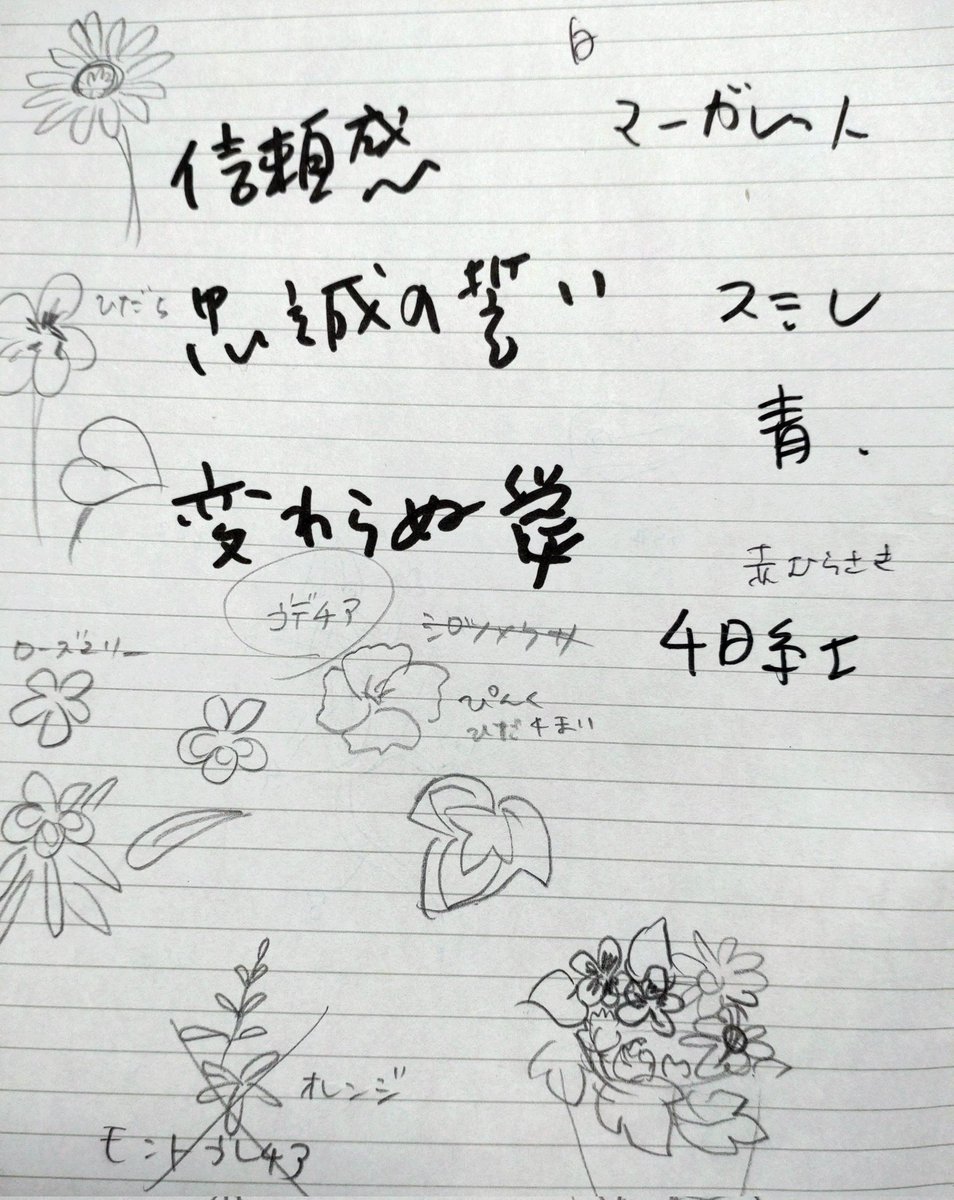 白
信頼感 マーガレット
忠誠の誓い スミレ
青.
変わらぬ
赤むらさき
ゴデチア シロツメクサ
ローズマリー
ぴんく
ひだ4まい
オレンジ
モントブレチア